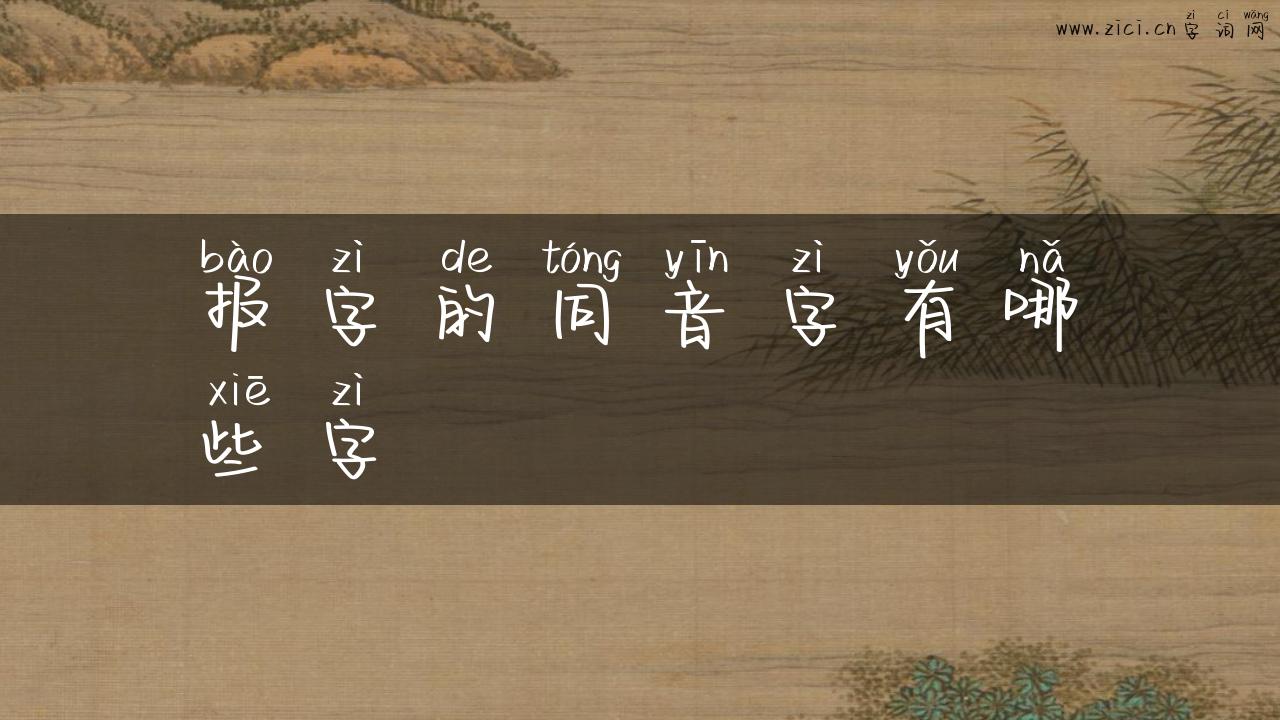 zì cí wǎng
www.zici.cn字词网
bào zì de tóng yīn zì yǒu nǎ
报字的同音字有哪
xiē zì
些字